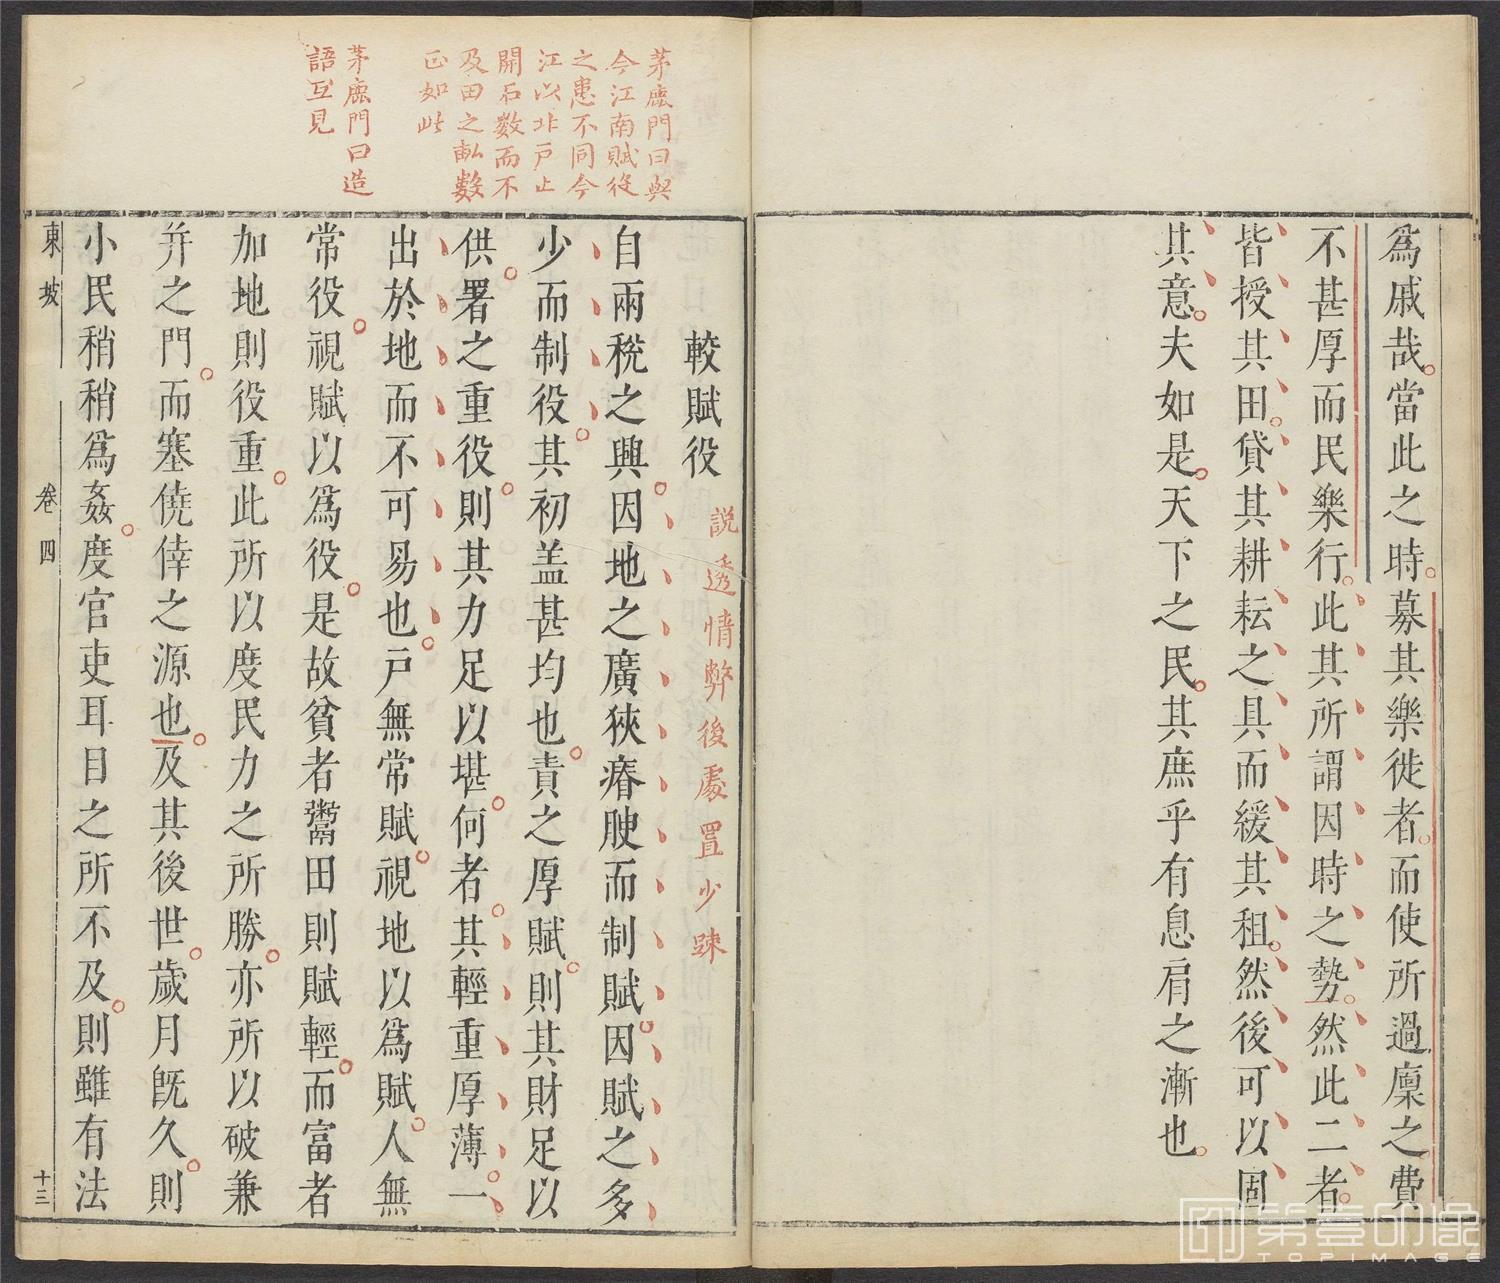 爲戚哉當此之時募其樂徙者而使所過廩之費
不甚厚而民樂行此其所謂因時之勢然此二者
皆授其田貸其耕耘之具而緩其租然後可以固
其意夫如是天下之民其庶乎有息肩之漸也
茅鹿門曰與
今江南賦役
之患不同今
江以北戶止
開石數而不
及田之畝數
正如此
茅鹿門曰造
語互見
較賦役
說透情弊後處置少踈
自兩稅之興因地之廣狹瘠腴而制賦因賦之多
少而制役其初盖甚均也責之厚賦則其財足以
供署之重役則其力足以堪何者其輕重厚薄一
出於地而不可易也戶無常賦視地以爲賦人無
常役視賦以爲役是故貧者鬻田則賦輕而富者
加地則役重此所以度民力之所勝亦所以破兼
并之門而塞僥倖之源也及其後世歲月旣久則
小民稍稍爲姦度官吏耳目之所不及則雖有法
東坡 卷四 十三
第壹印象
TOPIMAGE